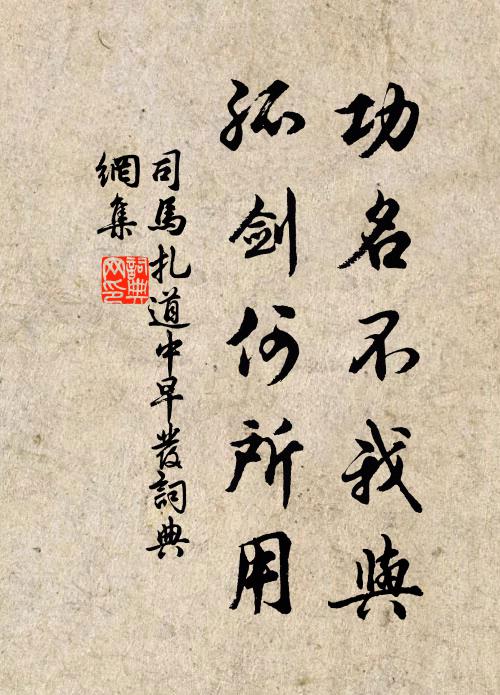 功名不我與
孤劍何所用
司馬扎道中早發詞典
網集
詞典
网印